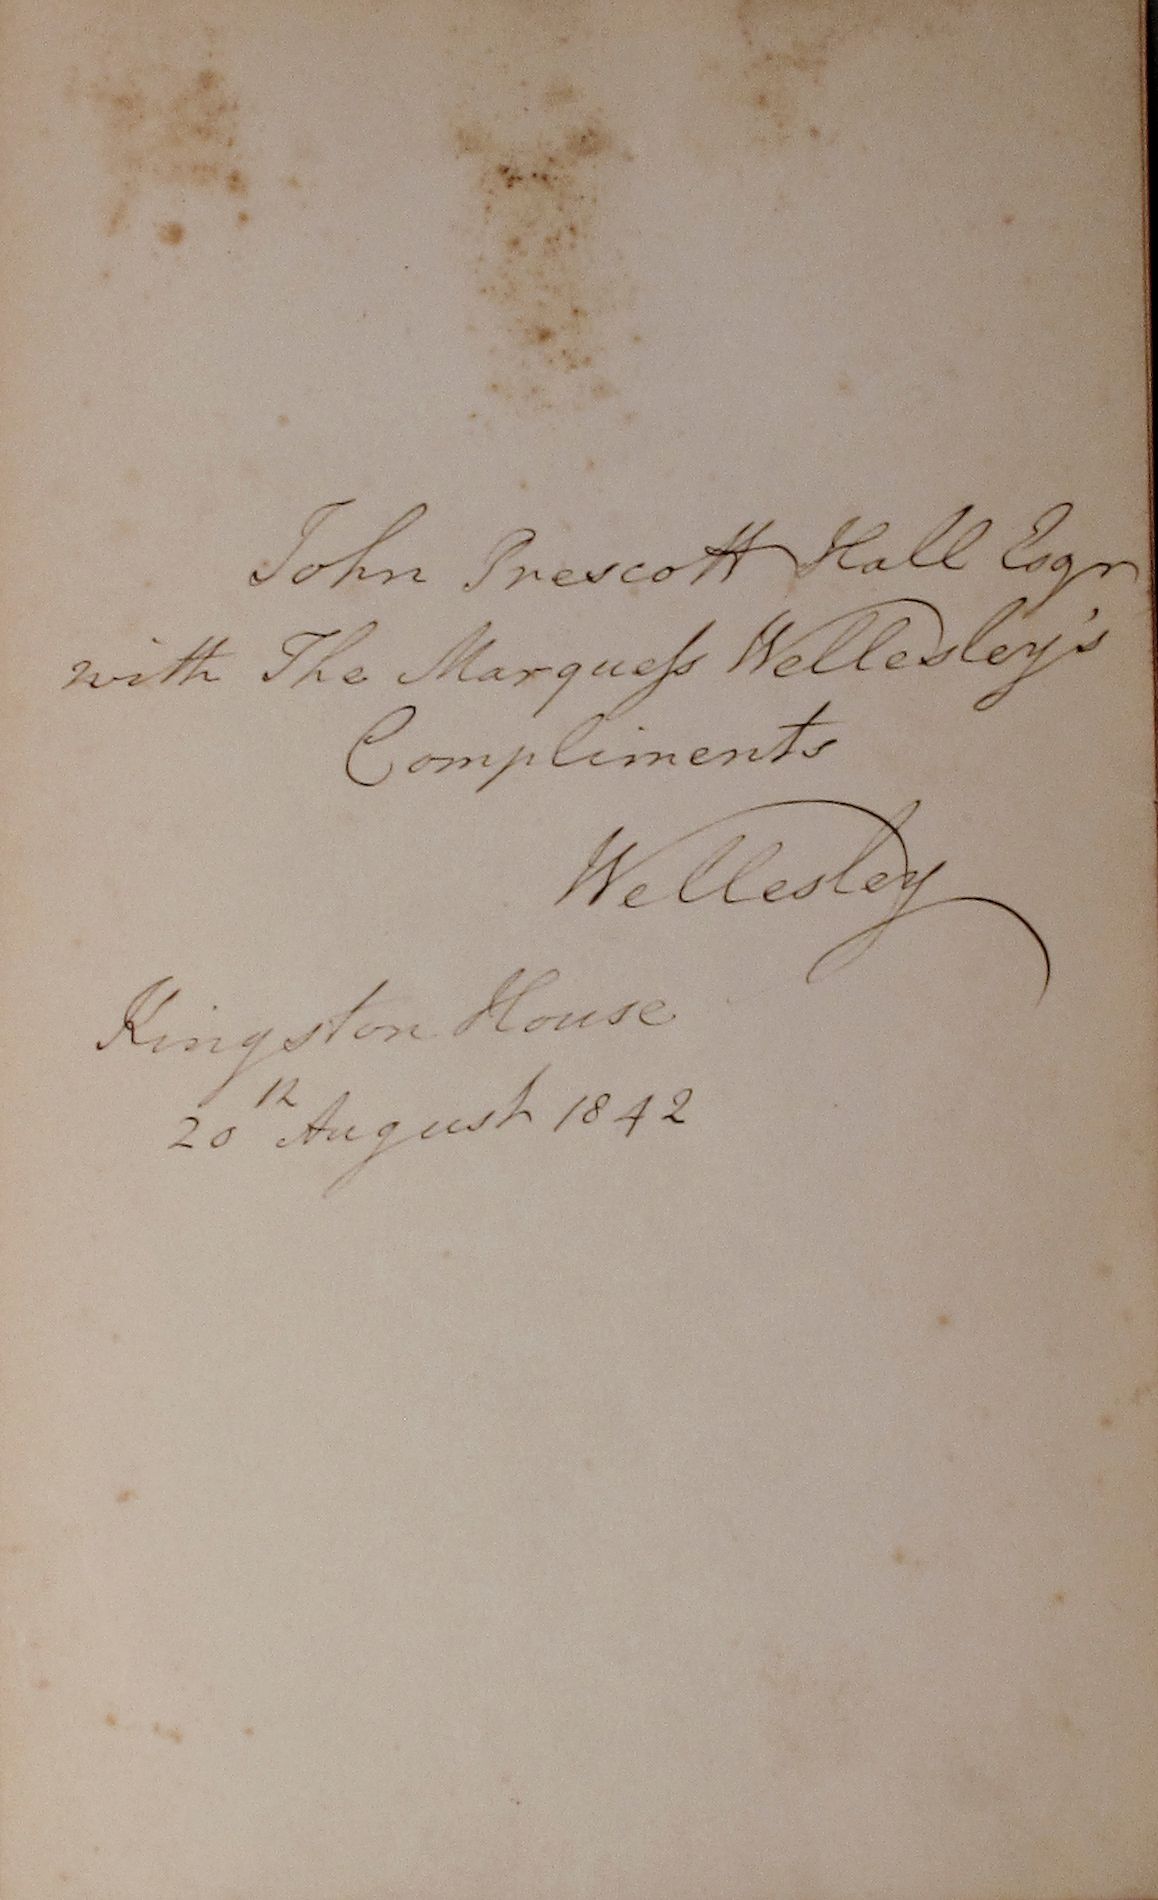 John Prescott Hall Esqr
with The Marquess Wellesley's
Compliments
Wellesley
Kingston House
20th August 1842